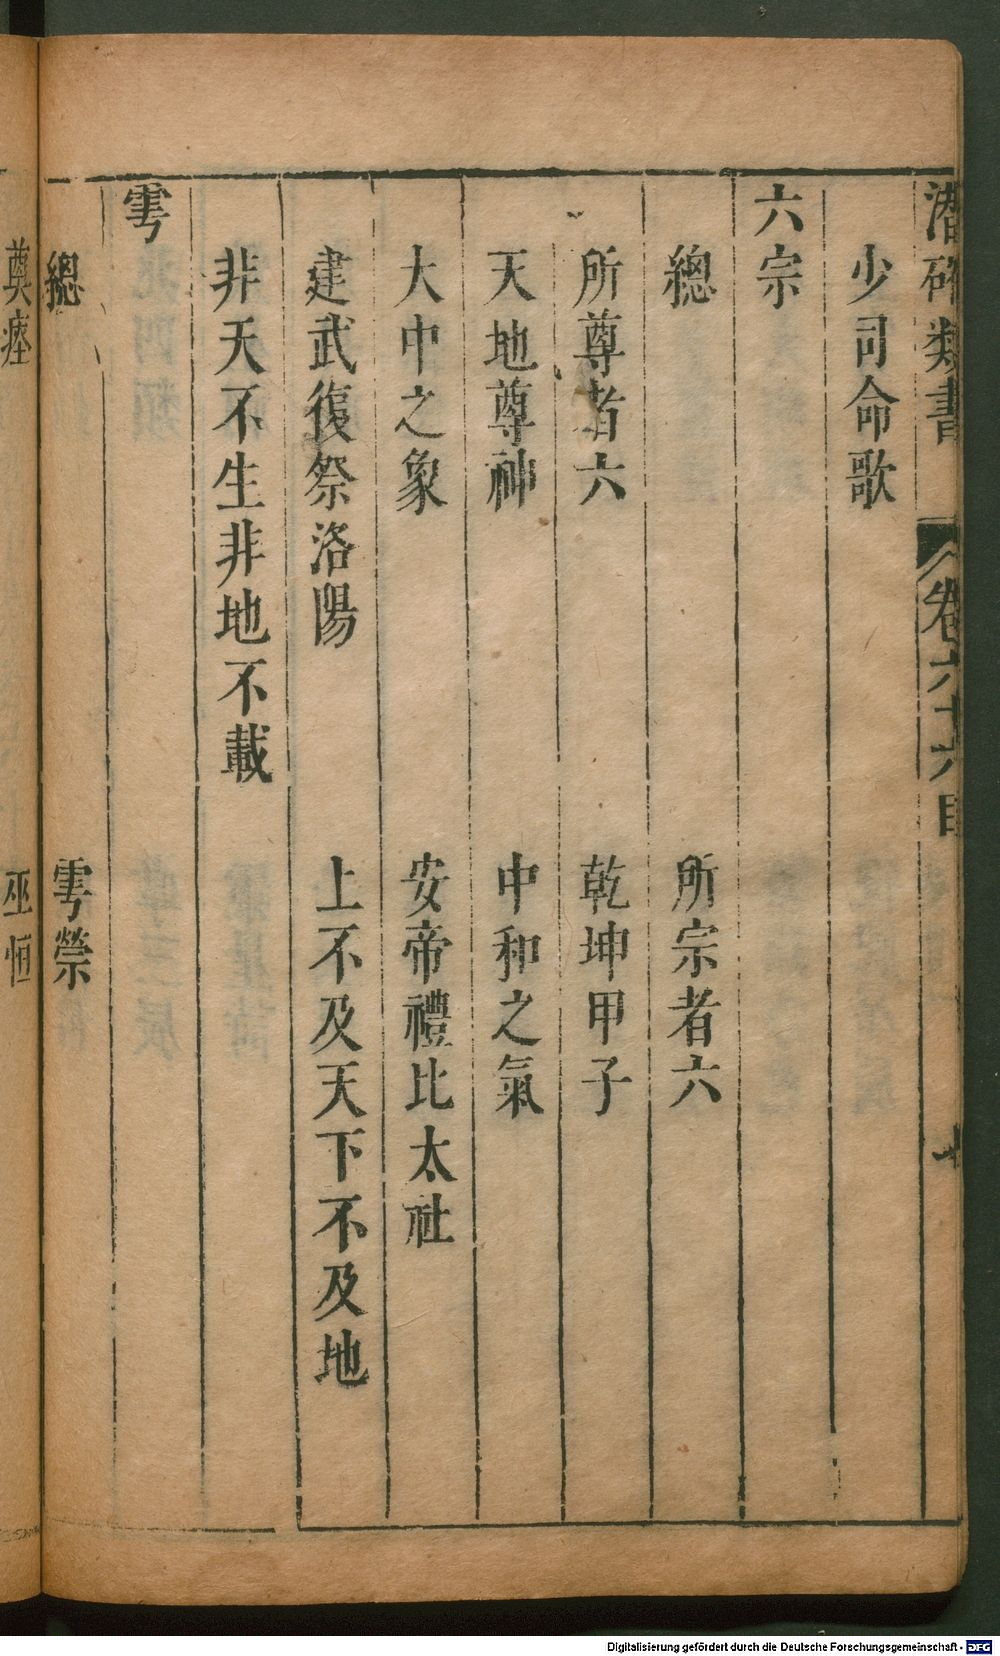 潛確類書 卷六十六目
少司命歌
六宗
總 所宗者六
所尊者六 乾坤甲子
天地尊神 中和之氣
大中之象 安帝禮比太社
建武復祭洛陽 上不及天下不及地
非天不生非地不載
雩
總 雩禜
奠瘞 巫恒
Digitalisierung gefördert durch die Deutsche Forschungsgemeinschaft - DFG